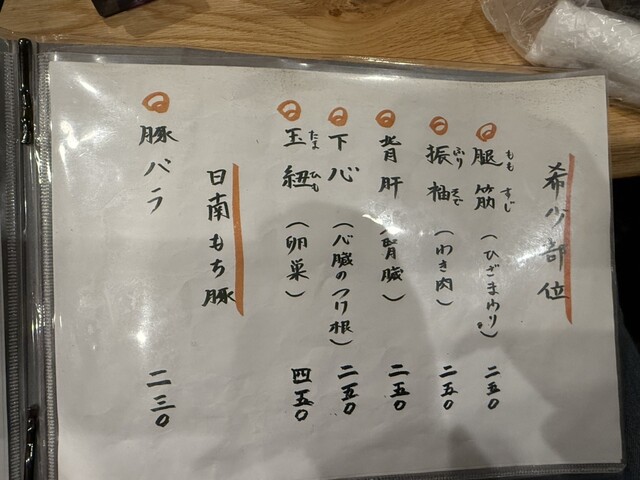 希少部位
腿筋 もも すじ (ひざまわり) 二五〇
振袖 ふり そで (わき肉) 二五〇
背肝 (腎臓) 二五〇
下心 (心臓のつけ根) 二五〇
玉紐 たま ひも (卵巣) 四五〇
日南もち豚
豚バラ 二三〇